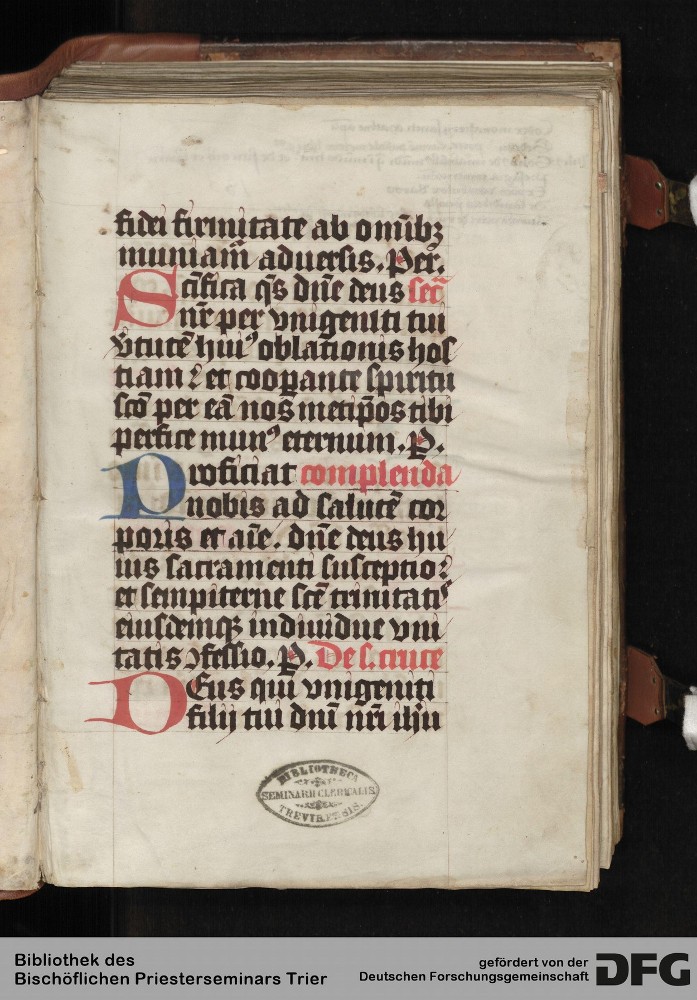 fidei firmitate ab omībꝫ
muniam̄ aduersis. Per.
Scīfica q̄s dn̄e deus secr̄
nr̄ per vnigeniti tui
v̓tutē huiꝰ oblationis hos
tiam ⁊ et coopante spiritu
scō per eā nos metip̄os tibi
perfice munꝰ eternum. P.
Proficiat complenda
nobis ad salutē cor
poris et aīe. dn̄e deus hu
ius sacramenti susceptio:
et sempiterne scē trinitatis
eiusdemqꝫ indiuidue vni
tatis ↄfessio. P. De s. cruce
DEus qui vnigeniti
filij tui dn̄i nr̄i ihu
BIBLIOTHECA
SEMINARII CLERICALIS
TREVIRENSIS.
Bibliothek des
Bischöflichen Priesterseminars Trier
gefördert von der
Deutschen Forschungsgemeinschaft
DFG